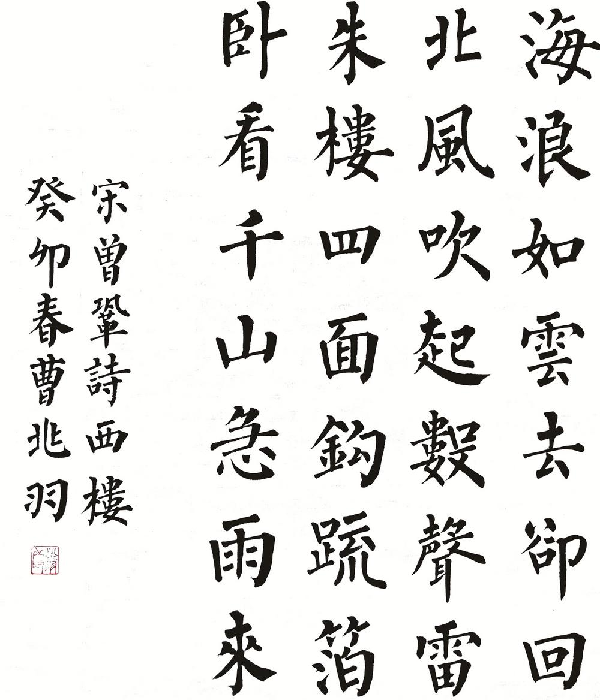 海浪如雲去卻回
北風吹起數聲雷
朱樓四面鈎疏箔
臥看千山急雨來
宋曾鞏詩西樓
癸卯春曹兆羽